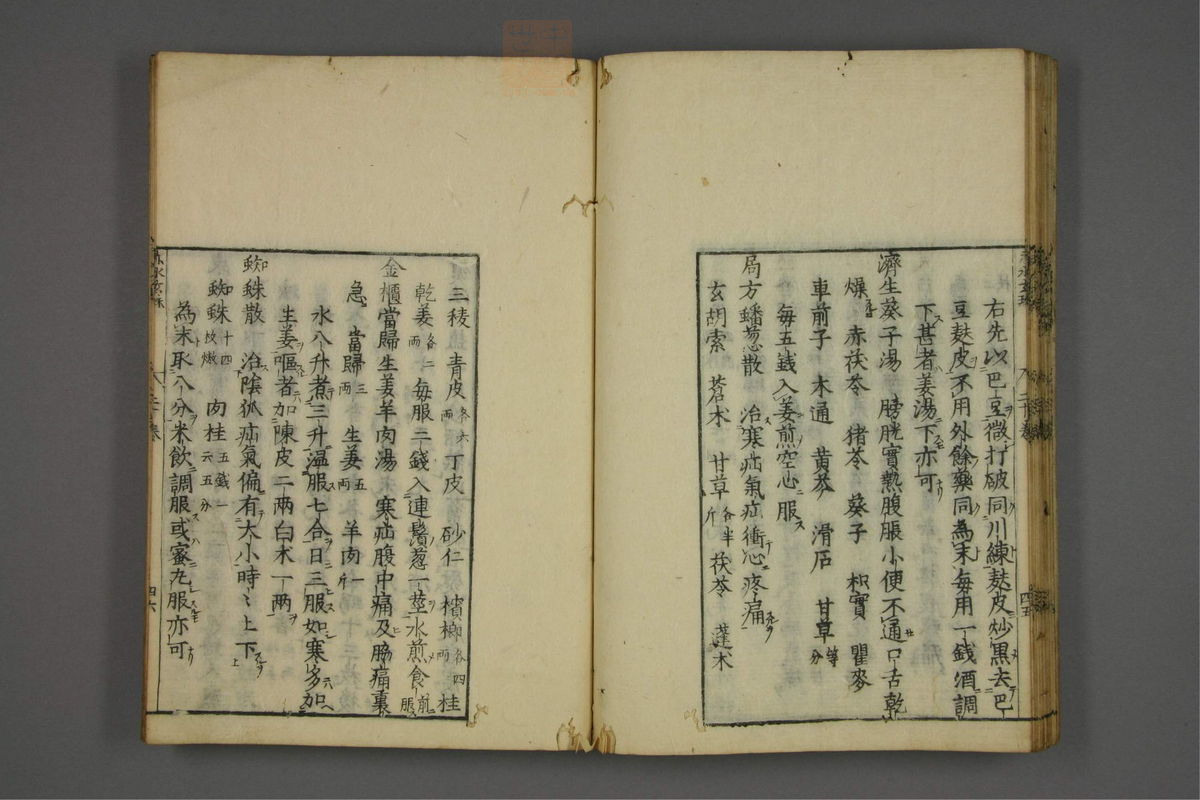 右先以巴豆微打破同川練麩皮炒黒去巴
豆麩皮不用外餘藥同為末毎用一錢酒調
下甚者姜湯下亦可
濟生葵子湯 膀胱實熱腹脹小便不通口舌乾
燥 赤茯苓 猪苓 葵子 枳實 瞿麥
車前子 木通 黄芩 滑石 甘草等分
毎五錢入姜煎空心服
局方蟠葱散 治寒疝氣疝衝心疼痛
玄胡索 蒼朮 甘草各半斤 茯苓 蓬朮
三稜 青皮各六兩 丁皮 砂仁 檳榔各四兩 桂
乾姜各二兩 毎服三錢入連鬚葱一莖水煎食前服
金櫃當歸生姜羊肉湯 寒疝腹中痛及脇痛裏
急 當歸三兩 生姜五兩 羊肉一斤
水八升煮三升温服七合日三服如寒多加
生姜嘔者加陳皮二兩白朮一兩
蜘蛛散 治陰狐疝氣偏有大小時〻上下
蜘蛛十四枚燉 肉桂五錢一云五分
為末取八分米飲調服或蜜丸服亦可
四五
四六